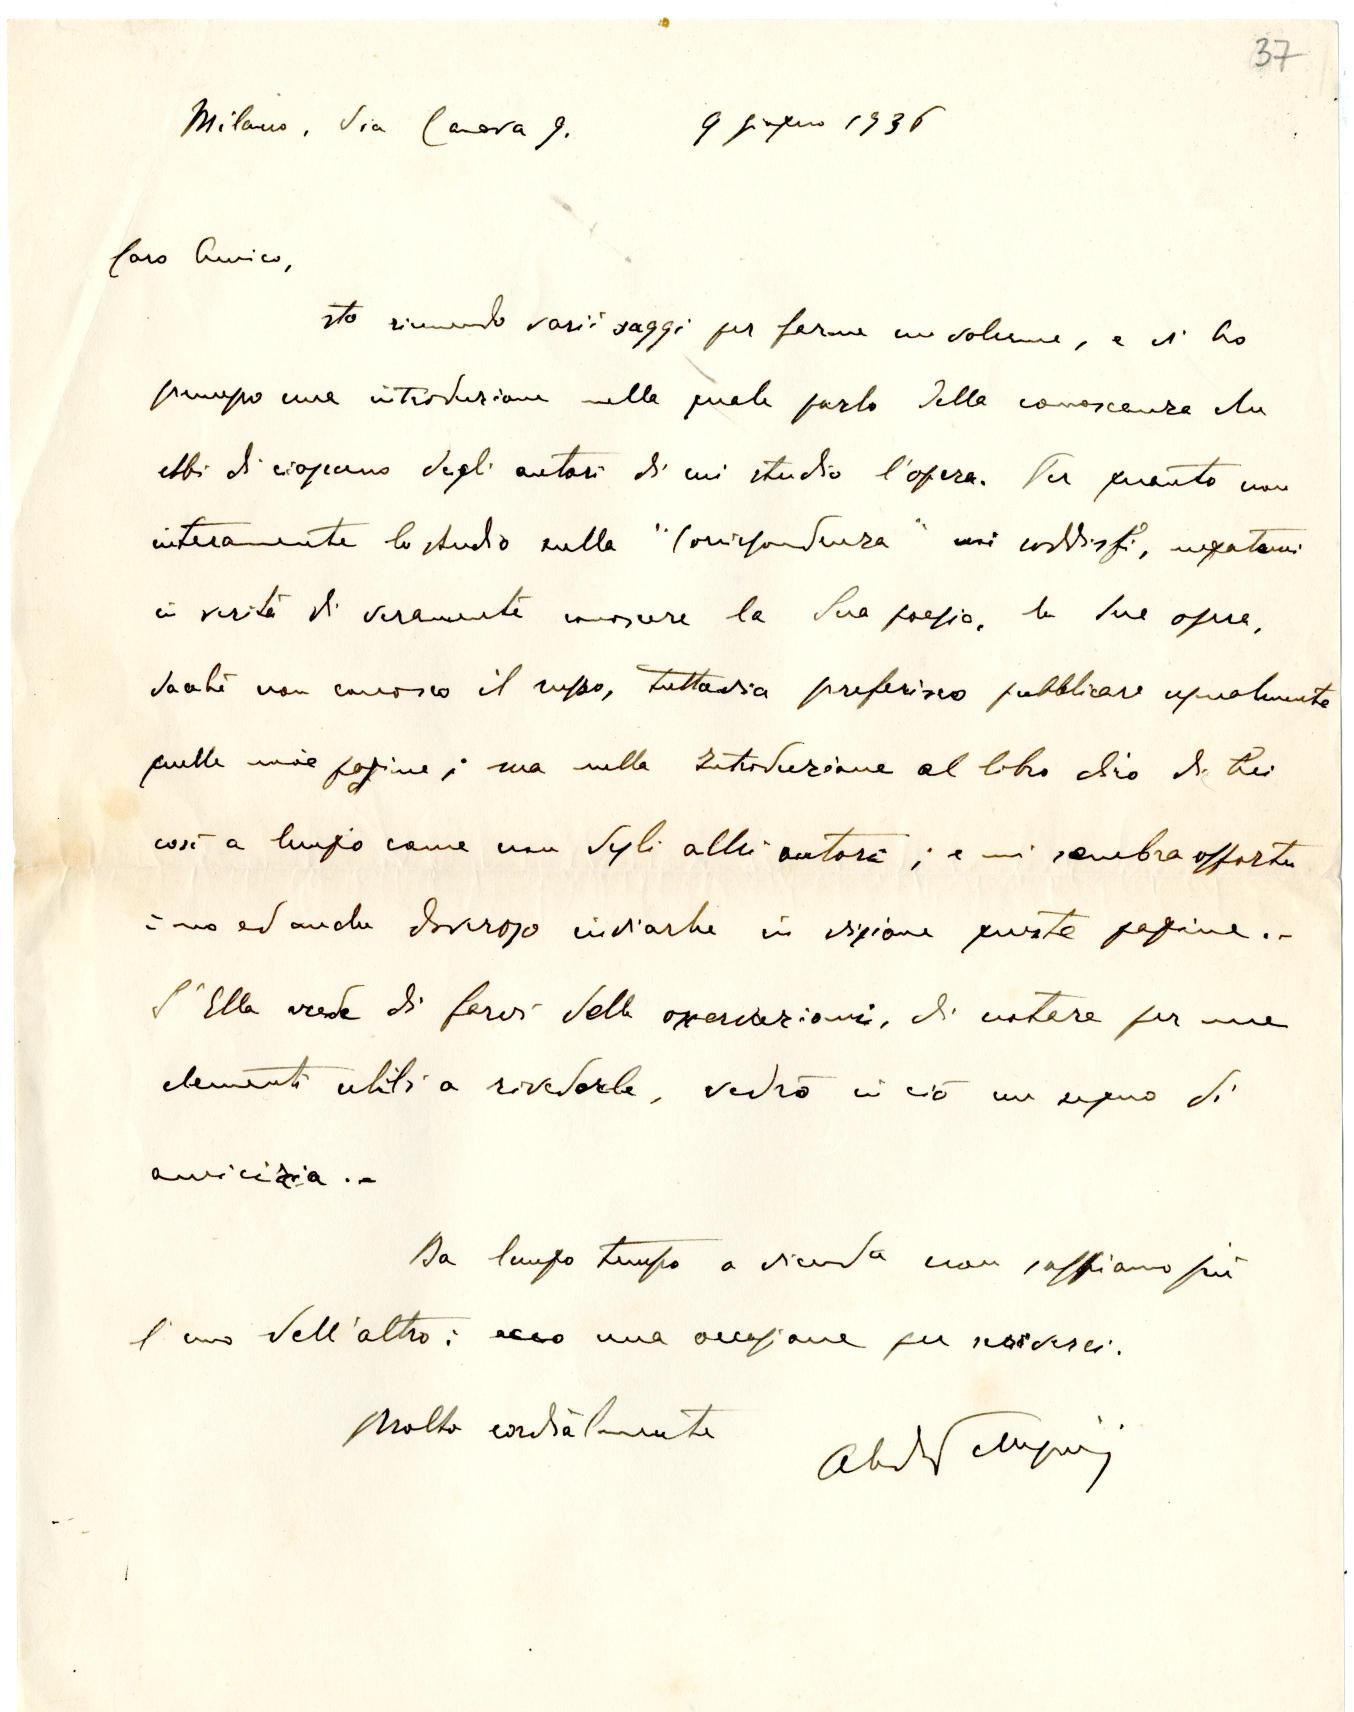 37
Milano, via Canova 9. 9 giugno 1936
Caro Amico,
sto riunendo varii saggi per farne un volume, e vi ho
premesso una introduzione nella quale parlo della conoscenza che
ebbi di ciascuno degli autori di cui studio l'opera. Per quanto non
interamente lo studio sulla "Corrispondenza" mi soddisfi, negatomi
in verità di veramente conoscere la Sua poesia, la Sua opera,
dacché non conosco il russo, tuttavia preferisco pubblicare ugualmente
quelle mie pagine; ma nella Introduzione al libro dirò di Lei
così a lungo come non degli altri autori; e mi sembra opportu
= no ed anche doveroso inviarLe in visione queste pagine.-
S'Ella crede di farvi delle osservazioni, di notare per me
elementi utili a rivederle, vedrò in ciò un segno di
amicizia.-
Da lungo tempo a vicenda non sappiamo più
l'uno dell'altro: ecco una occasione per scriverci.
Molto cordialmente